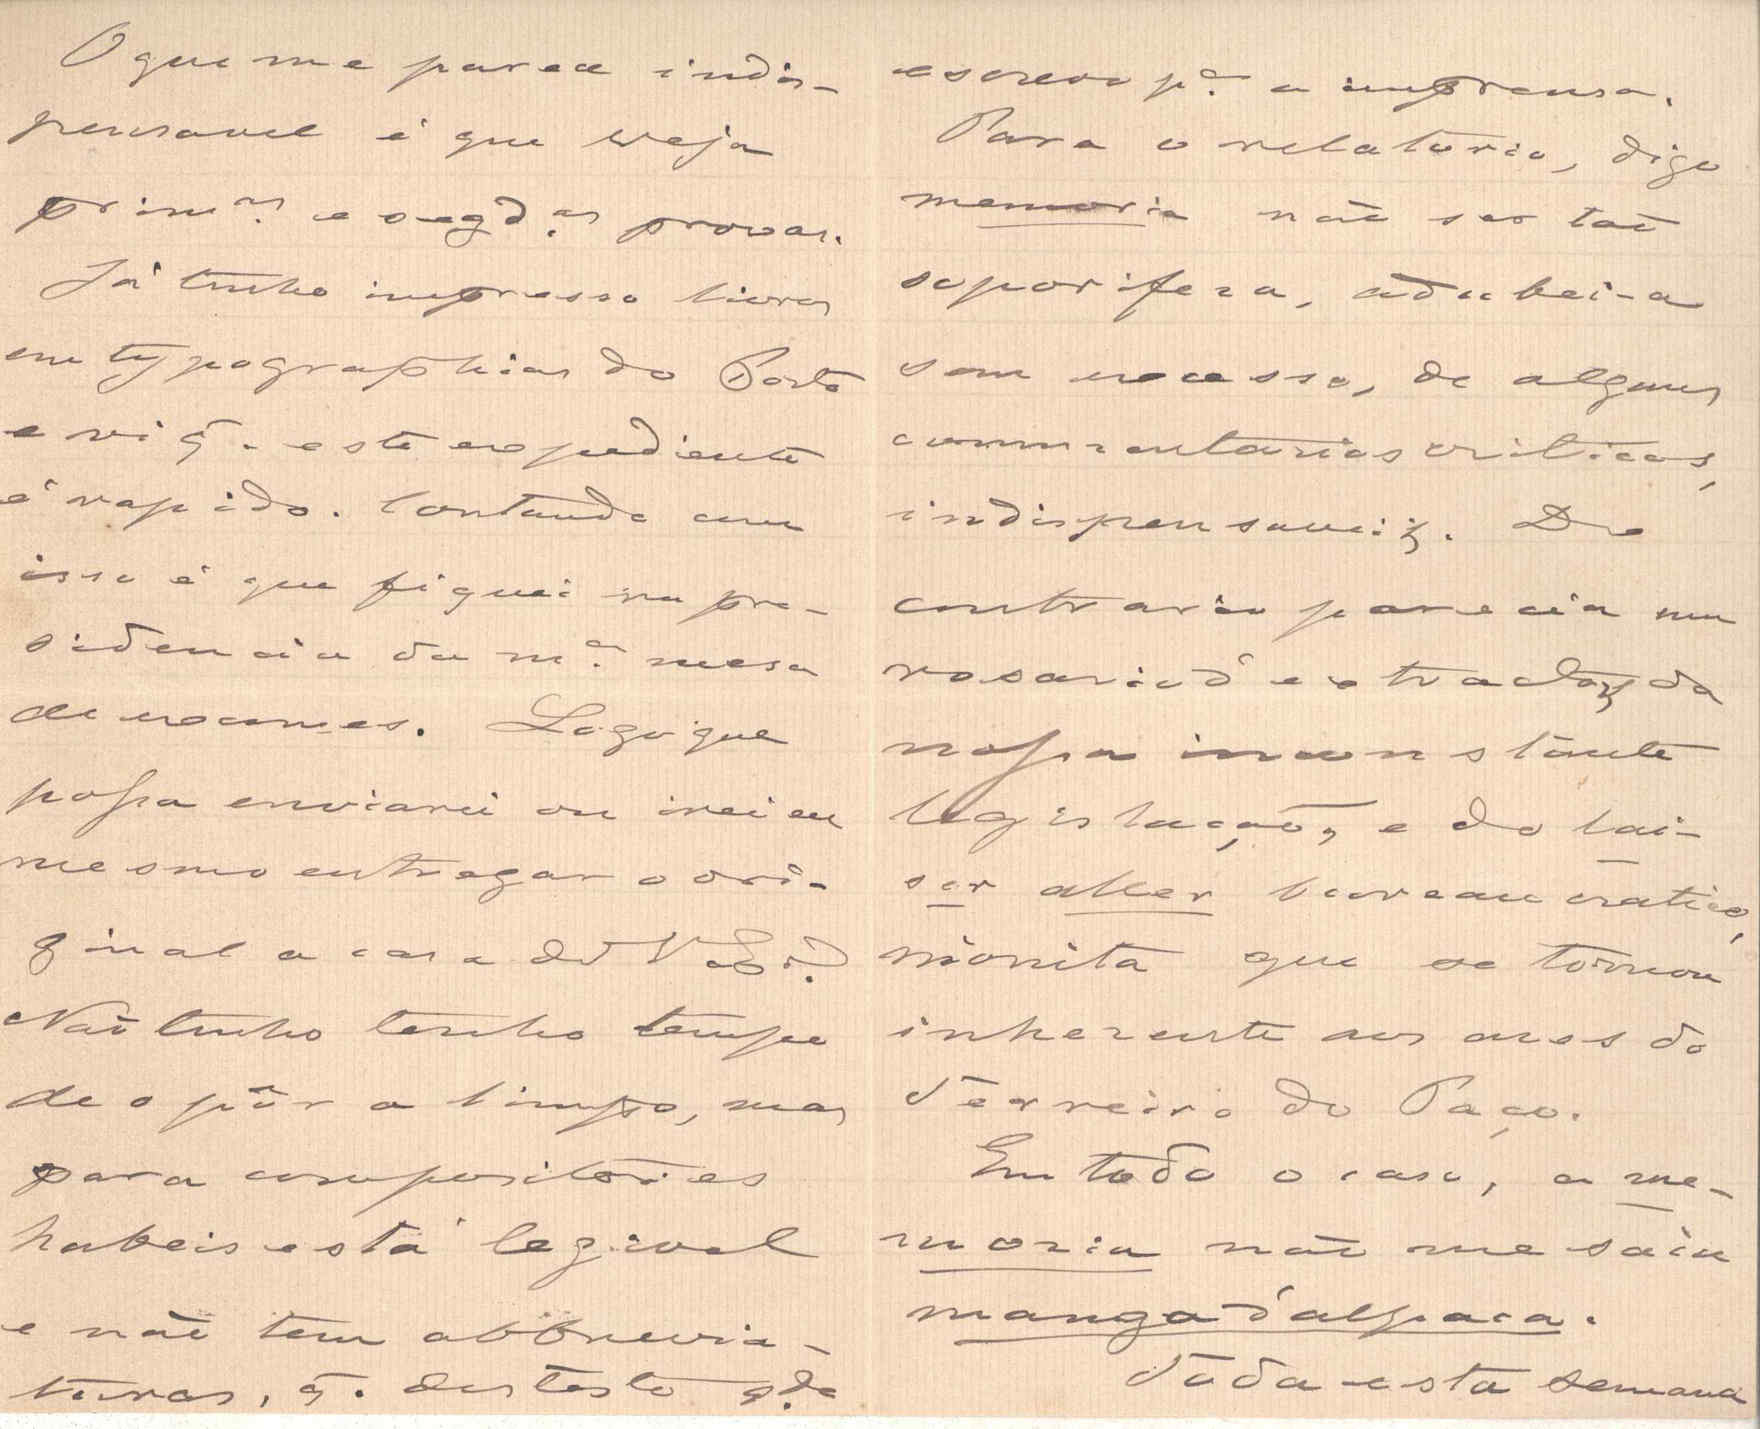 O que me parece indis-
pensavel é que veja
prim.as e segd.as provas.
Já tenho impresso livros
em typographias do Porto
e vi q. este expediente
é rapido. Contando com
isso é que fiquei na pre-
sidencia da m.a mesa
de exames. Logo que
possa enviarei ou irei eu
mesmo entregar o ori-
ginal a casa de V.
Não tenho tenho tempo
de o pôr a limpo, mas
para compositores
habeis está legivel
e não tem abbrevia-
turas, q. detesto q.do
escrevo p.a a imprensa.
Para o relatorio, digo
memoria não ser tão
soporifera, adubei-a
sem excesso, de alguns
commentarios criticos,
indispensaveis. Do
contrario parecia um
rosario d'extractos da
nossa inconstante
legislação, e do lai-
ser aller bureaucratico,
que se tornou
inherente aos ares do
Terreiro do Paço.
Em todo o caso, a me-
moria não me saiu
manga d'alpaca.
Toda esta semana